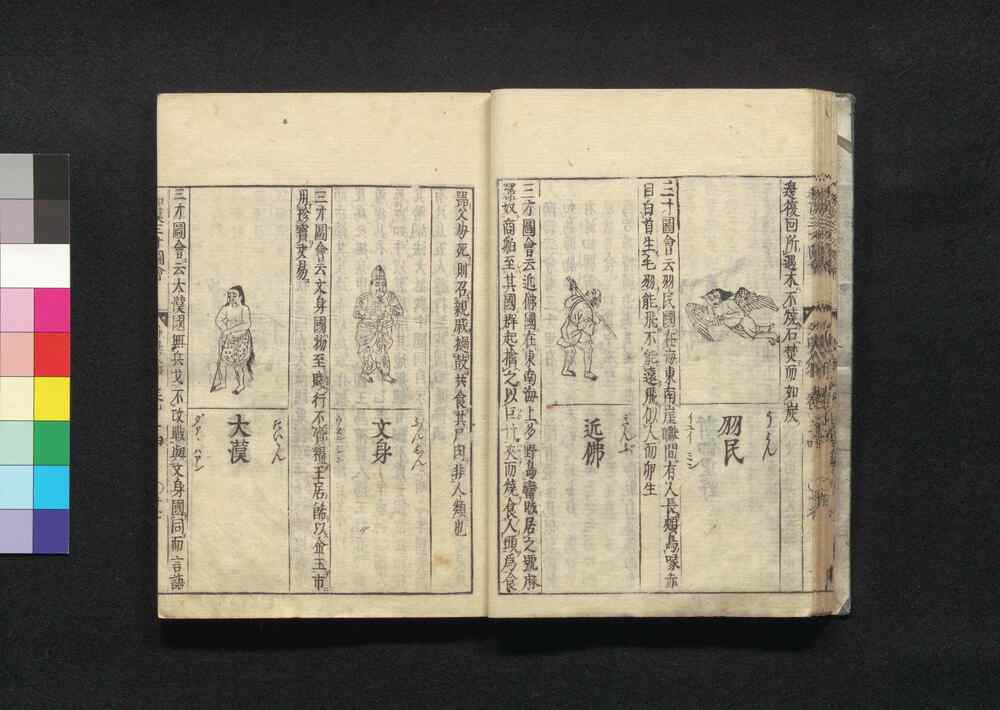 幾複回所遇木不燒石焚而如炭
羽民
うみん
イユイ ミン
三才圖會云羽民國在海東南崖巘間有人長頰鳥喙赤
目白首生毛羽能飛不能遠飛似人而卵生
近佛
きんぶ
三才圖會云近佛國在東南海上多野島蠻賊居之號麻
奴商舶至其國群起擒之以巨竹夾而燒食人頭爲食
器父母死則召親戚撾鼓共食其尸肉非人類也
文身
ぶんしん
三才圖會云文身國物至賤行不齎糧王居飾以金玉市
用珍寶交易
大漠
たいかん
三才圖會云大漠國無兵戈不攻戰與文身國同而言語